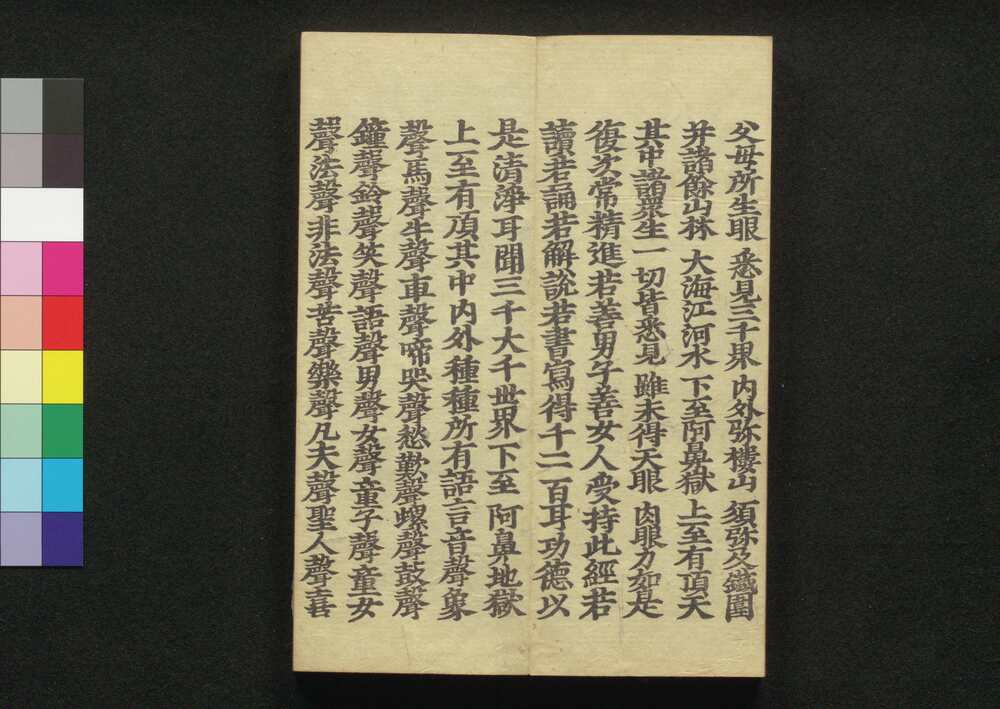 父母所生眼 悉見三千界 内外弥樓山 須弥及鐵圍
并諸餘山林 大海江河水 下至阿鼻獄 上至有頂天
其中諸衆生 一切皆悉見 雖未得天眼 肉眼力如是
復次常精進若善男子善女人受持此經若
讀若誦若解説若書寫得千二百耳功德以
是清淨耳聞三千大千世界下至阿鼻地獄
上至有頂其中内外種種所有語言音聲象
聲馬聲牛聲車聲啼哭聲愁歎聲螺聲鼓聲
鐘聲鈴聲笑聲語聲男聲女聲童子聲童女
聲法聲非法聲苦聲樂聲凡夫聲聖人聲喜